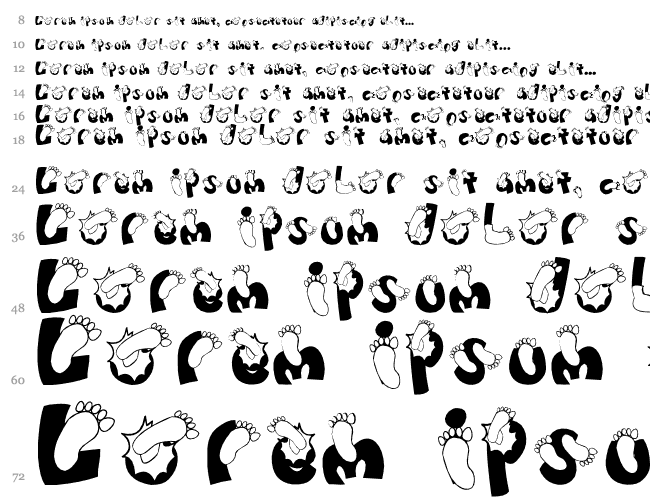 8 Lorem ipsom dolor sit amet, consectetuer adipiscing elit...
10 Lorem ipsom dolor sit amet, consectetuer adipiscing elit...
12 Lorem ipsom dolor sit amet, consectetuer adipiscing elit...
14 Lorem ipsom dolor sit amet, consectetuer adipiscing el
16 Lorem ipsom dolor sit amet, consectetuer adipis
18 Lorem ipsom dolor sit amet, consectetuer
24 Lorem ipsom dolor sit amet, co
36 Lorem ipsom dolor s
48 Lorem ipsom dol
60 Lorem ipsom
72 Lorem ipso